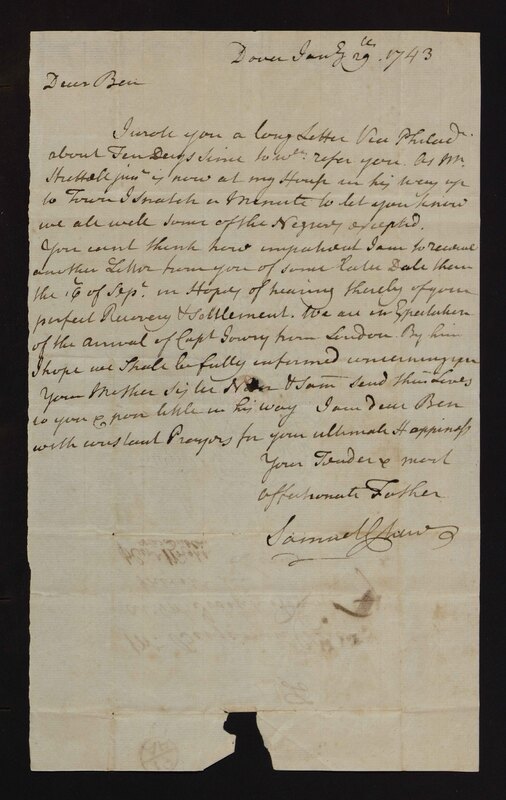 Dover Janry 29th. 1743
Dear Ben
I wrote you a long Letter Via Philad.
about Ten Days Since to wch. refer you. As Mr.
Strettell junr. is now at my House in his way up
to Town I snatch a Minute to let you know
we are all well some of the Negroes excepted.
You cant think how impatient I am to receive
another Letter from you of some Later Date then
the 16 of Sepr. in Hopes of hearing thereby of your
perfect Recovery & Settlement. We are in Expectation
of the arrival of Capt from London. By him
I hope we Shall be fully informed concerning you
Your Mother Sister & Sam send their Loves
to you & poor little in his way I am Dear Ben
with constant Prayers for your ultimate Happiness
Your Tender & most
affectionate Father
Samuel Chew